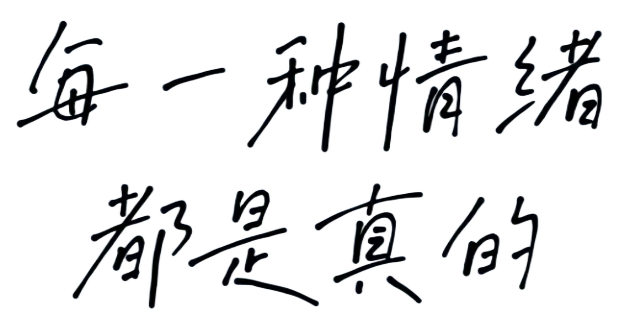 每一种情绪
都是真的